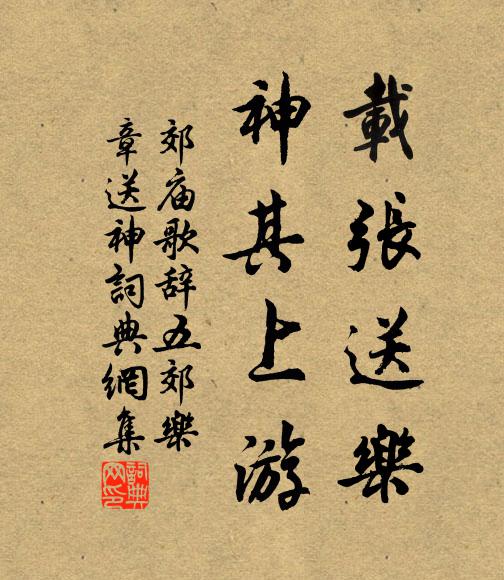 載張送樂
神其上游
郊庙歌辞五郊樂
章送神詞典網集
詞典网印